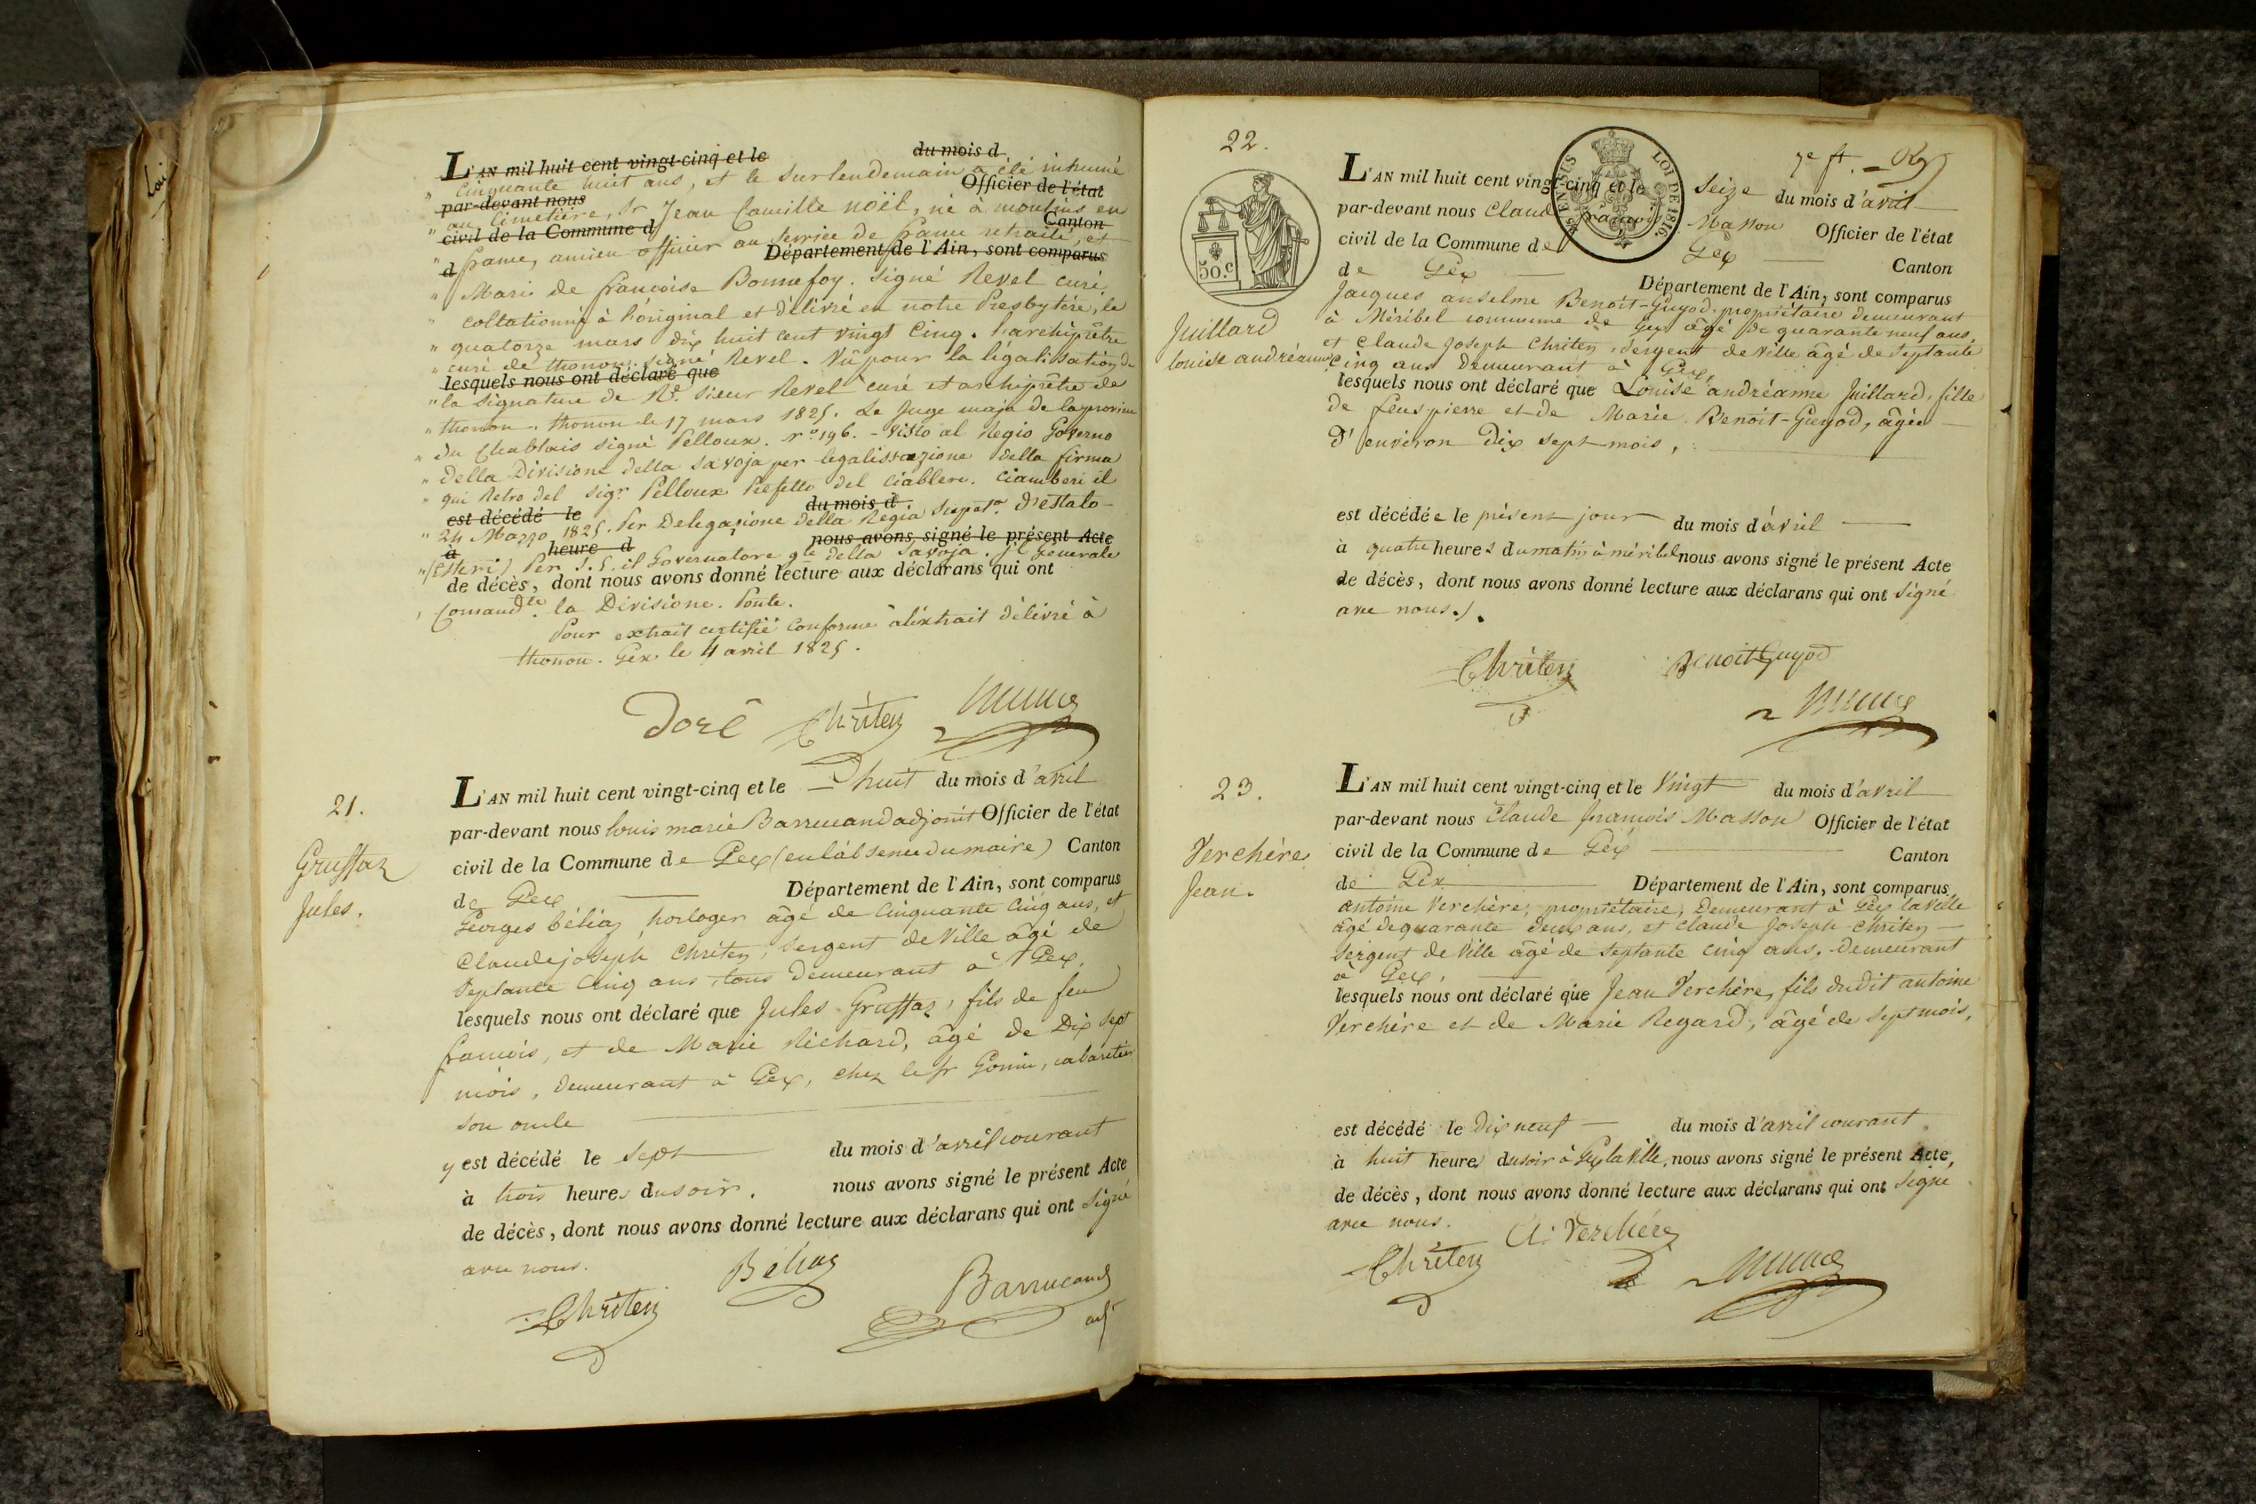 L'AN mil huit cent vingt-cinq et le du mois d
" cinquante huit ans, et le surlendemain a été inhumé
par-devant nous Officier de l'état
" au Cimetière, Sr Jean Camille noël, né à moulins en
civil de la Commune d Canton
" france, ancien officier au service de france retraité, et
d Département de l'Ain, sont comparus
" Mari de francoise Bonnefoy. Signé Revel curé,
" collationné à l'original et délivré en notre Presbytére, le
" quatorze mars dix huit cent vingt cinq. l'archiprêtre
" curé de thonon. signé Revel. Vû pour la légalisation de
lesquels nous ont déclaré que
" la signature de Rd. Sieur Revel curé et archiprêtre de
" thonon. thonon le 17 mars 1825. Le Juge maja de la province
" du Chablais signé Pelloux. no. 196. - Visto al Regio Governo
" della Divisione della Savoja per legalissazione della firma
" qui Retro del sigr. Pelloux Prefetto del Ciablere. Ciamberi il
est décédé le du mois d
" 24 Marzo 1825. Per Delegazione della Regia d'estato
à heure d nous avons signé le présent Acte
" (Esteri) Per S. E. il Governatore gle della Savoja. il Generale
de décès, dont nous avons donné lecture aux déclarans qui ont
Comandte. la Divisione. Ponte.
Pour extrait certifié conforme à l'extrait délivré à
thonon. Gex le 4 avril 1825.
Doré Chriten
21.
Gruffaz
Jules.
L'AN mil huit cent vingt-cinq et le huit du mois d'avril
par-devant nous louis marie Barrucand adjoint Officier de l'état
civil de la Commune de Gex (en l'absence du maire) Canton
de Gex Département de l'Ain, sont comparus
Georges béliaz, horloger âgé de cinquante cinq ans, et
Claude joseph Chriten, sergent de Ville âgé de
Septante cinq ans, tous demeurant à Gex.
lesquels nous ont déclaré que Jules Gruffaz, fils de feu
francois, et de Marie Richard, âgé de Dix sept
mois, demeurant à Gex, chez le sr Gonin, cabaretier
son oncle
y est décédé le sept du mois d'avril courant
à trois heures du soir. nous avons signé le présent Acte
de décès, dont nous avons donné lecture aux déclarans qui ont Signé
avec nous.
Chriten Béliaz Barrucand
adj
22.
Juillard
louise andréanne
50.c
EN SUS LOI DE 1816.
7e ft.
L'AN mil huit cent vingt-cinq et le Seize du mois d'avril
par-devant nous Claude françois Masson Officier de l'état
civil de la Commune de Gex Canton
de Gex Département de l'Ain, sont comparus
Jacques anselme Benoit-Guyod, propriétaire demeurant
à Méribel commune de Gex âgé de quarante neuf ans,
et Claude Joseph Chriten, sergent de Ville âgé de septante
cinq ans demeurant à Gex,
lesquels nous ont déclaré que Louise andréanne Juillard, fille
de feus pierre et de Marie Benoit-Guyod, âgée
d'environ Dix sept mois,
est décédée le présent jour du mois d'avril
à quatre heures du matin à méribel nous avons signé le présent Acte
de décès, dont nous avons donné lecture aux déclarans qui ont signé
avec nous./.
Chriten Benoit Guyod
23.
Verchère
Jean.
L'AN mil huit cent vingt-cinq et le Vingt du mois d'avril
par-devant nous Claude françois Masson Officier de l'état
civil de la Commune de Gex Canton
de Gex Département de l'Ain, sont comparus
antoine Verchère, propriétaire, Demeurant à Gex la Ville
âgé de quarante deux ans, et Claude Joseph Chriten
sergent de Ville âgé de septante cinq ans, demeurant
à Gex,
lesquels nous ont déclaré que Jean Verchère, fils dudit antoine
Verchère et de Marie Regard, âgé de sept mois,
est décédé le Dix neuf du mois d'avril courant
à huit heures du soir à Gex la Ville, nous avons signé le présent Acte
de décès, dont nous avons donné lecture aux déclarans qui ont signé
avec nous.
Chriten A. Verchére